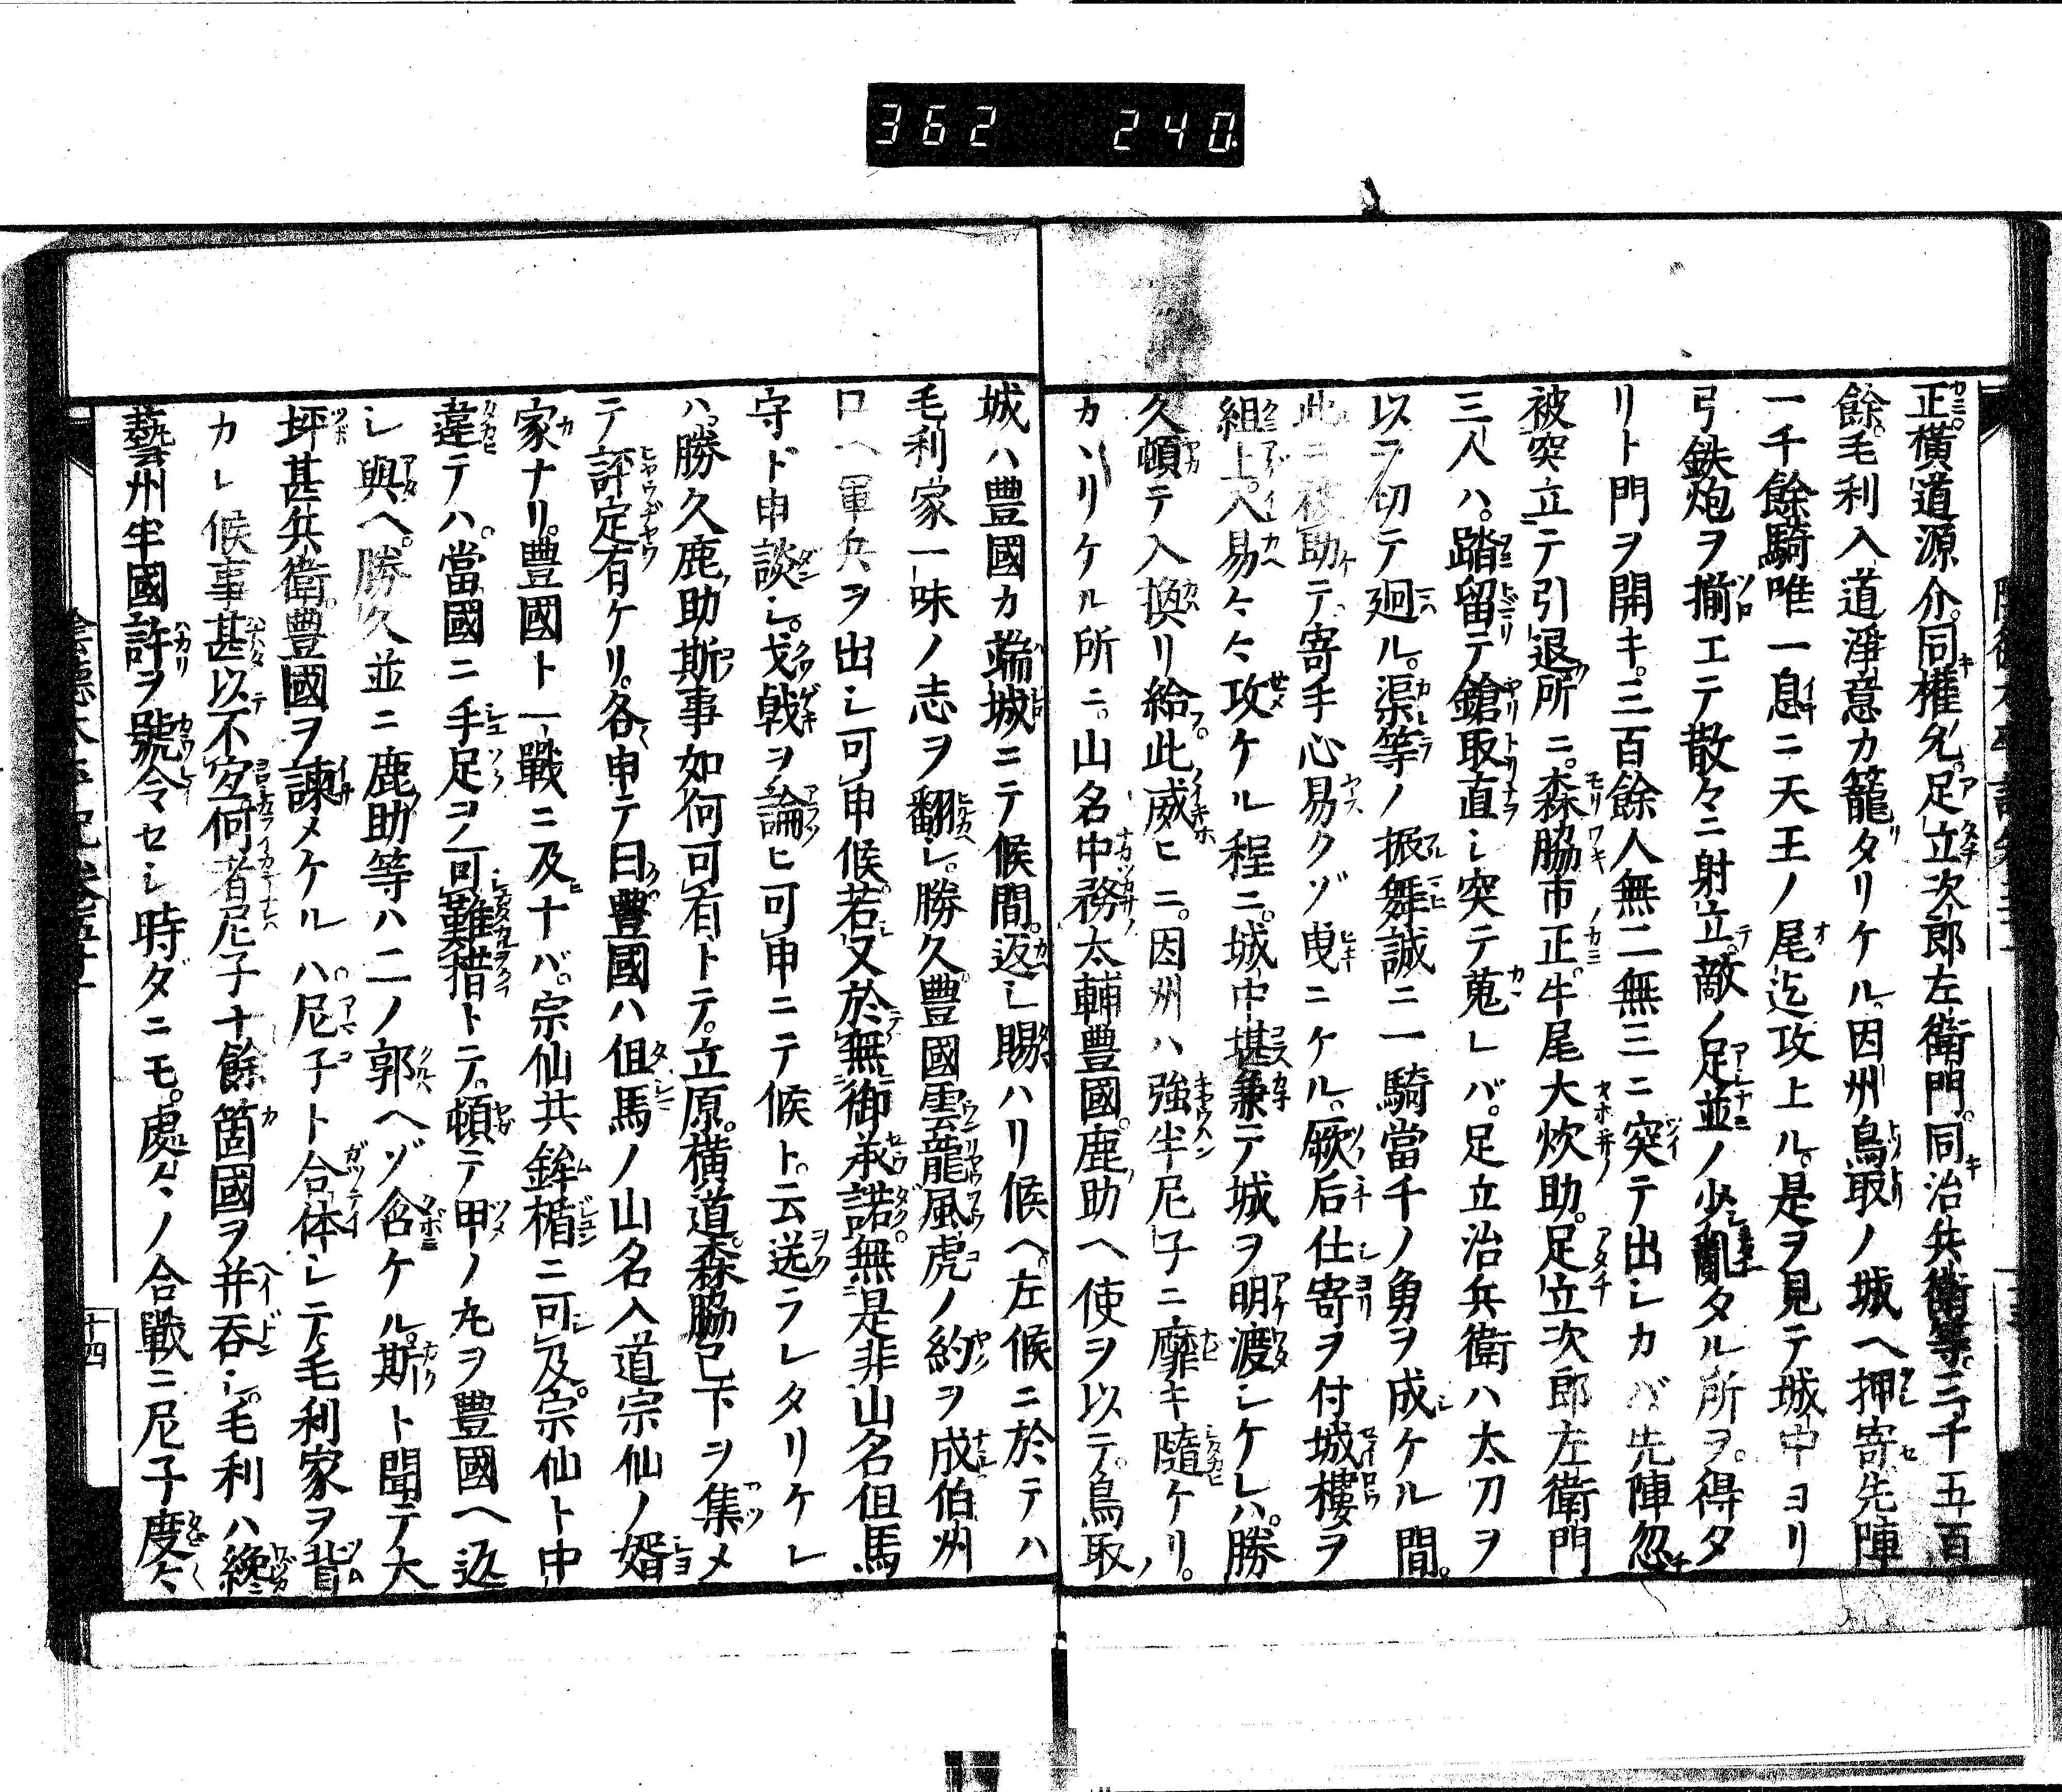 362 240
正横道源介。同權允。足立次郎左衛門。同治兵衛等。三千五百
餘。毛利入道淨意カ籠タリケル。因州鳥取ノ城ヘ押寄。先陣
一千餘騎唯一息ニ天王ノ尾迄攻上ル。是ヲ見テ城中ヨリ
弓鉄炮ヲ揃エテ散々ニ射立。敵ノ足並ノ少亂タル所ヲ。得タ
リト門ヲ開キ。三百餘人無二無三ニ突テ出シカバ先陣忽
被突立テ引退所ニ。森脇市正。牛尾大炊助。足立次郎左衛門
三人ハ。踏留テ鎗取直シ突テ蒐レバ。足立治兵衛ハ太刀ヲ
以テ切テ廻ル。渠等ノ振舞誠ニ一騎當千ノ勇ヲ成ケル間。
此ニ被助テ寄手心易クゾ曳ニケル。厥后仕寄ヲ付城樓ヲ
組上。入易々々攻ケル程ニ。城中堪兼テ城ヲ明渡シケレハ。勝
久頓テ入換リ給。此威ヒニ。因州ハ強半尼子ニ靡キ隨ケリ。
カヽリケル所ニ。山名中務太輔豊國。鹿助ヘ使ヲ以テ。鳥取ノ
城ハ豊國カ端城ニテ候間。返シ賜ハリ候ヘ。左候ニ於テハ
毛利家一味ノ志ヲ翻シ。勝久豊國雲龍風虎ノ約ヲ成伯州
口ヘ軍兵ヲ出シ可申候。若又於無御承諾。無是非山名但馬
守ト申談シ。戈戟ヲ論ヒ可申ニテ候ト。云送ラレタリケレ
ハ。勝久鹿助斯事如何可有トテ。立原。横道。森脇已下ヲ集メ
テ評定有ケリ。各申テ曰豊國ハ但馬ノ山名入道宗仙ノ婿
家ナリ。豊國ト一戰ニ及ナバ。宗仙共鉾楯ニ可及。宗仙ト中
違テハ。當國ニ手足ヲノ可難措トテ。頓テ甲ノ丸ヲ豊國ヘ返
シ與ヘ。勝久並ニ鹿助等ハ二ノ郭ヘゾ窄ケル。斯ト聞テ大
坪甚兵衛。豊國ヲ諫メケルハ。尼子ト合体シテ。毛利家ヲ背
カレ候事甚以不宜。何者尼子十餘箇國ヲ并呑シ。毛利ハ纔ニ
藝州半國許ヲ號令セシ時ダニモ。處々ノ合戰ニ尼子度々
十四